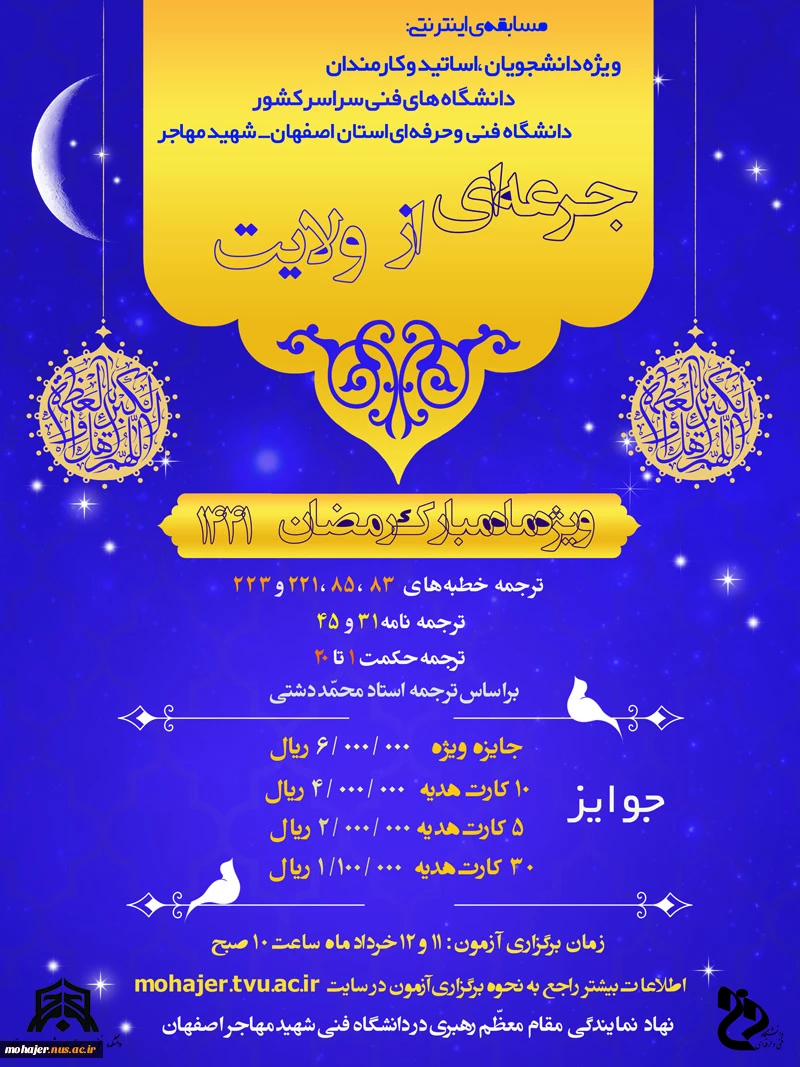 مسابقه‌ی اینترنتی:
ویژه دانشجویان ،اساتید و کارمندان
دانشگاه های فنی سراسر کشور
دانشگاه فنی و حرفه ای استان اصفهان_شهید مهاجر
جرعه‌ای از ولایت
ویژه ماه مبارک رمضان ۱۴۴۱
ترجمه خطبه های ۸۳ ،۸۵ ،۲۲۱ و ۲۲۳
ترجمه نامه ۳۱ و ۴۵
ترجمه حکمت ۱ تا ۲۰
براساس ترجمه استاد محمّد دشتی
جوایز
جایزه ویژه ۶/۰۰۰/۰۰۰ ریال
۱۰ کارت هدیه ۴/۰۰۰/۰۰۰ ریال
۵ کارت هدیه ۲/۰۰۰/۰۰۰ ریال
۳۰ کارت هدیه ۱/۱۰۰/۰۰۰ ریال
زمان برگزاری آزمون : ۱۱ و ۱۲ خرداد ماه ساعت ۱۰ صبح
اطلاعات بیشتر راجع به نحوه برگزاری آزمون در سایت mohajer.tvu.ac.ir
نهاد نمایندگی مقام معظّم رهبری در دانشگاه فنی شهید مهاجر اصفهان
mohajer.nus.ac.ir